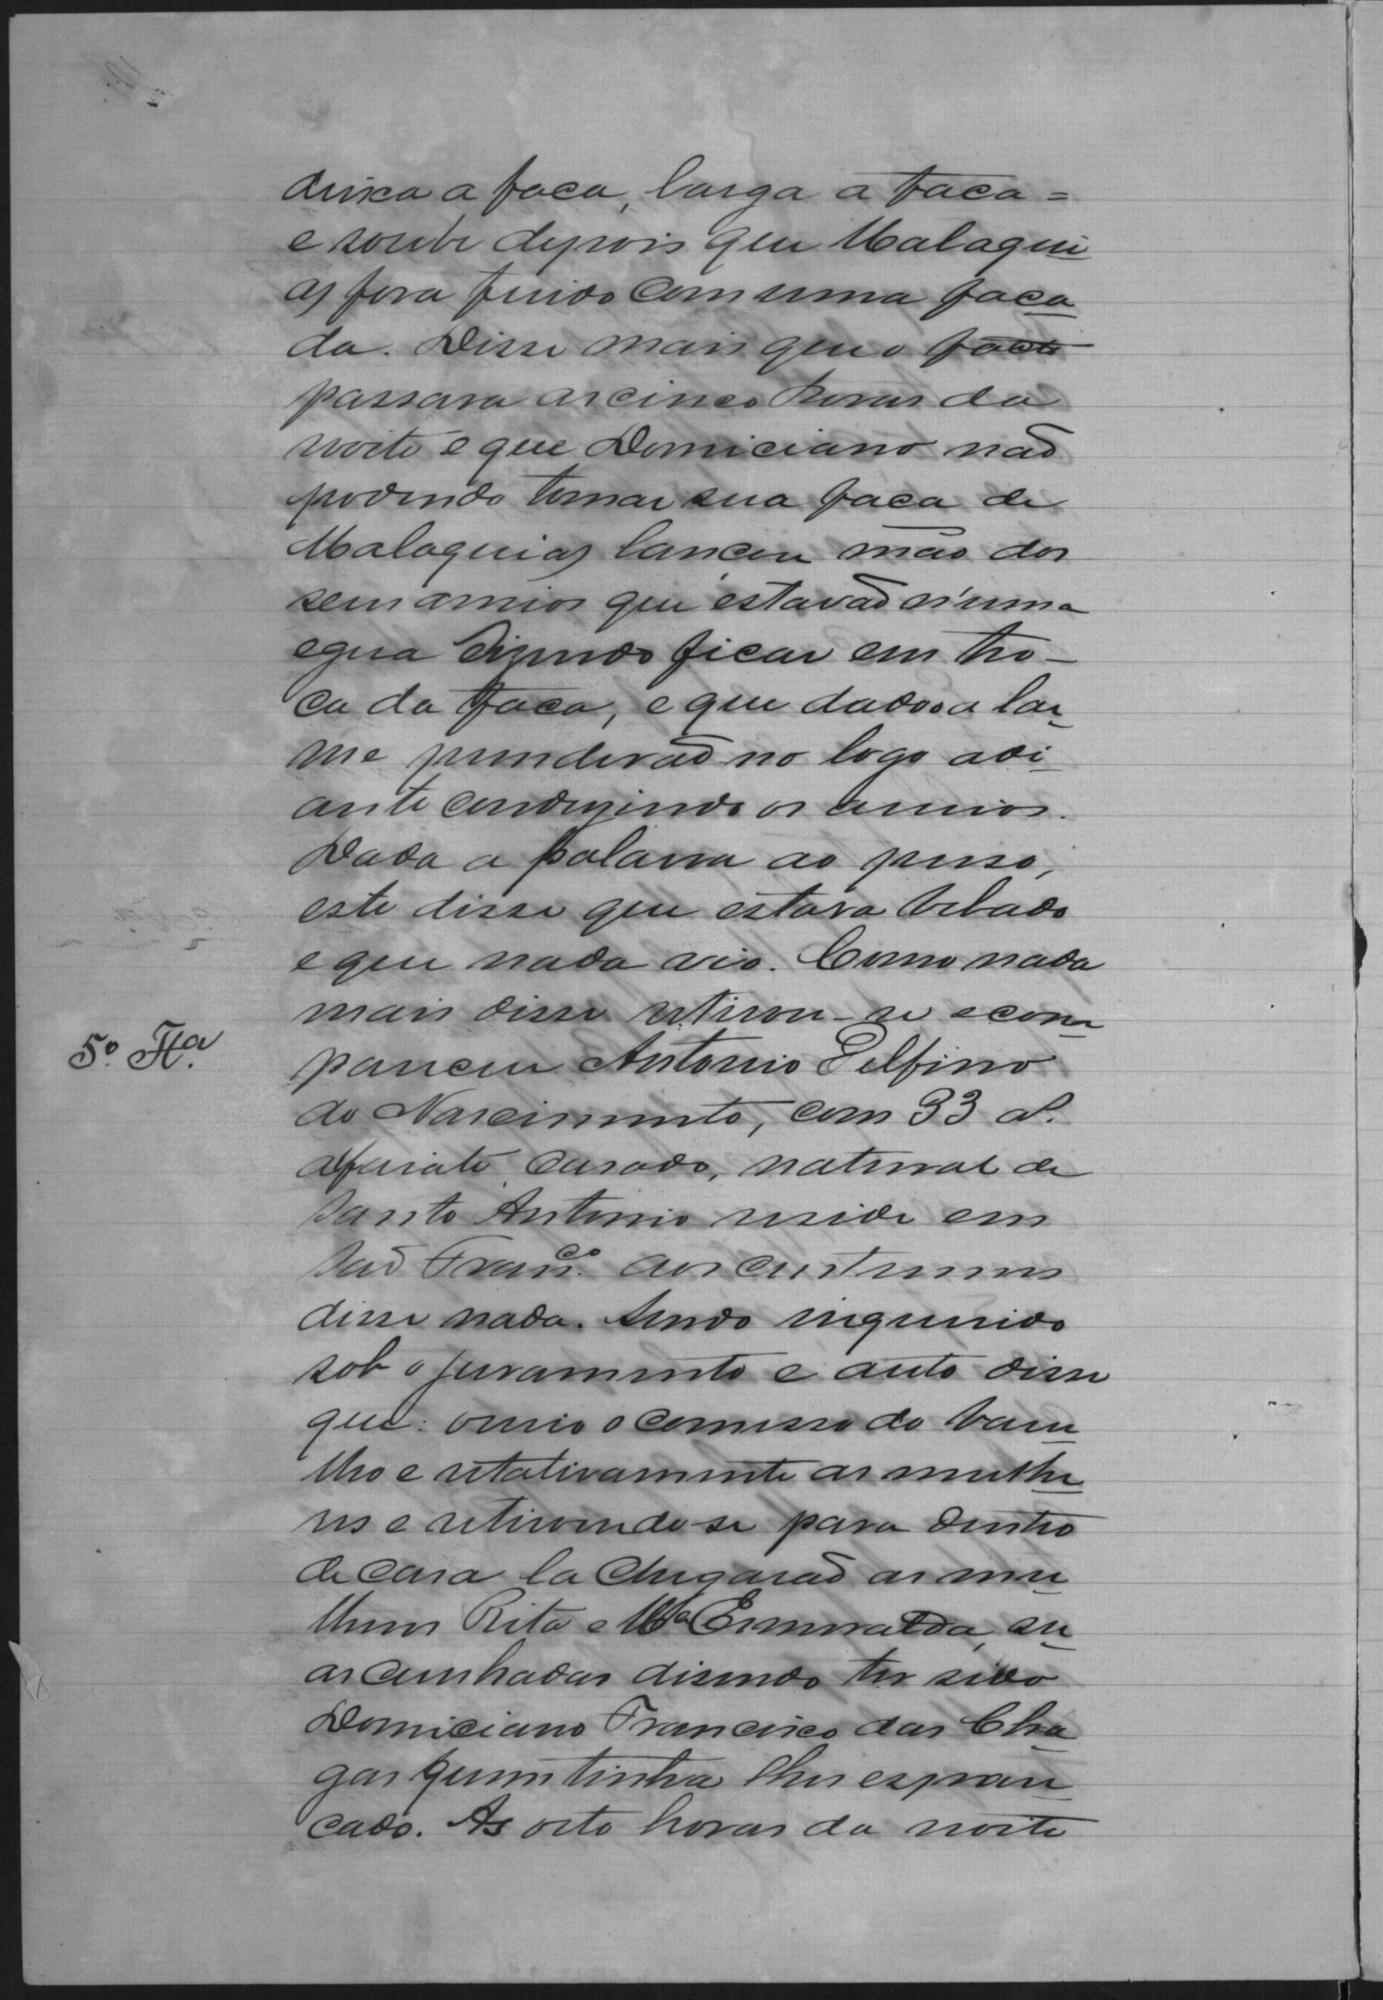 deixa a faca, larga a faca =
e soube depois que Malaqui
as fora ferido com uma faca
da. Disse mais que o facto
passara as cinco horas da
noite e que Domiciano não
podendo tomar sua faca de
Malaquias lançou mão dos
seus arreios que estavão n'uma
egua dizendo ficar em tro-
ca da faca, e que dado o alar
me prenderão no logo adi
ante conduzindo os arreios.
Dada a palavra ao preso,
este disse que estava bebado
e que nada vio. Como nada
mais disse retirou-se e com
5º Tª.
pareceu Antonio Delfino
do Nascimento, com 33 aˢ.
alfaiate casado, natural de
Santo Antonio reside em
São Franᶜº. aos custumes
disse nada. Sendo inquerido
sob o juramento e auto disse
que: ouvio o comesso do baru
lho e relativamente as mulhe
res e retirando-se para dentro
de casa la chegarão as mu
lheres Rita e Mª Esmeralda, su
as cunhadas disendo ter sido
Domiciano Francisco das Cha
gas quem tinha lhes espan
cado. As oito horas da noite